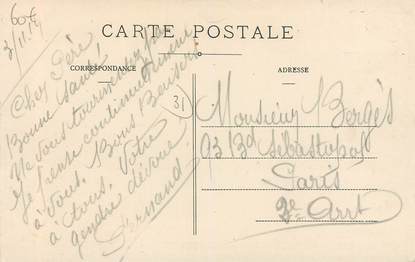 60€
CARTE POSTALE
CORRESPONDANCE
ADRESSE
Cher Père
Bonne santé.
Ne vous tourmentez pas
Je pense continuellement
à vous. Bons Baisers
à tous. Votre
gendre dévoué.
Fernand
31
Monsieur Bergès
93 Bd Sébastopol
Paris
2e Arrt